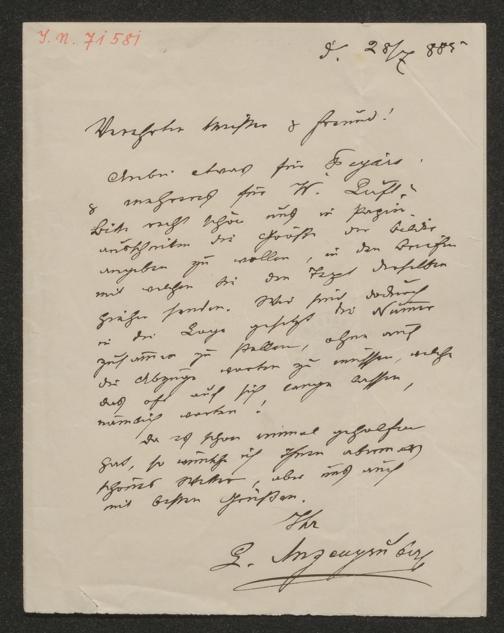 I. N. 71581
d. 28/7 885
Verehrter Meister & Freund!
Anbei etwas für Figaro
& mehreres für "W. Luft".
Bitte recht schön uns in Papier-
ausschnitten die Größe der Bilder
angeben zu wollen, in den Briefen
mit welchen Sie den Text derselben
hieher senden. Wir sind dadurch
in die Lage gesetzt die Nummer
zusammen zu stellen, ohne auf
die Abzüge warten zu müssen, welche
das oft auf sich lange lassen,
nämlich warten!
Da es schon einmal geholfen
hat, so wünsche ich Ihnen abermals
schönes Wetter, aber uns auch
mit besten Grüßen.
Ihr
L. Anzengruber